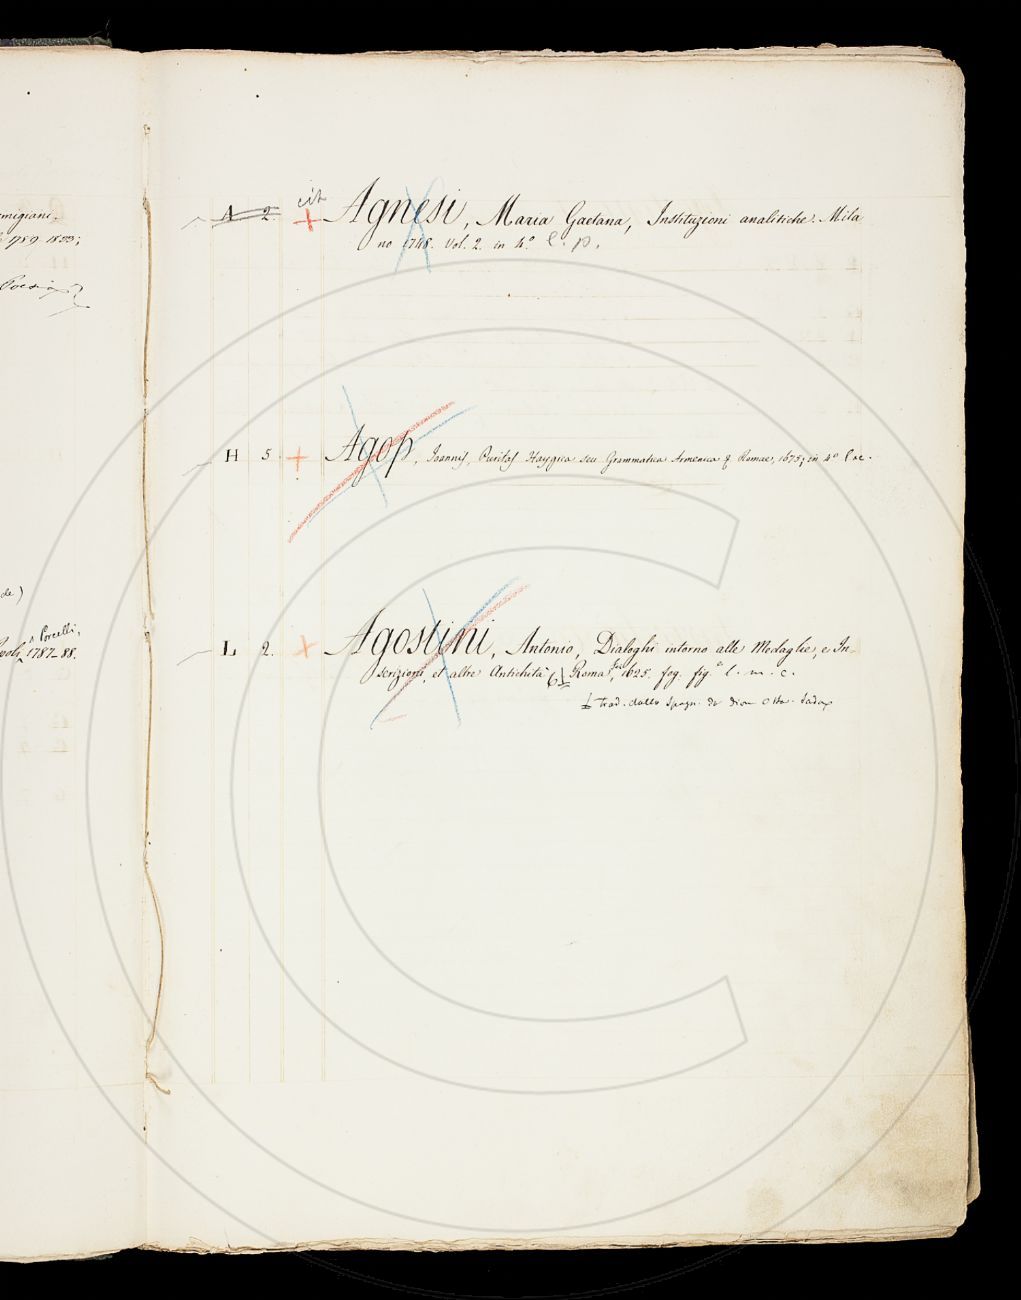 migiani.
1789. 1833;
Poesia
de)
Porcelli,
1787-88.
cit
A 2. + Agnesi, Maria Gaetana, Instituzioni analitiche. Mila
no 1748. Vol. 2. in 4.º l. p.
H 5. + Agop, Joannis, Puritas Haygica seu Grammatica Armenica Romae, 1675, in 4º
L 2. + Agostini, Antonio, Dialoghi intorno alle Medaglie, e In-
scrizioni, et altre Antichità Roma, 1625. fog. fig. l. m. c.
trad. dallo Spagn. da Dion Otta. Sada